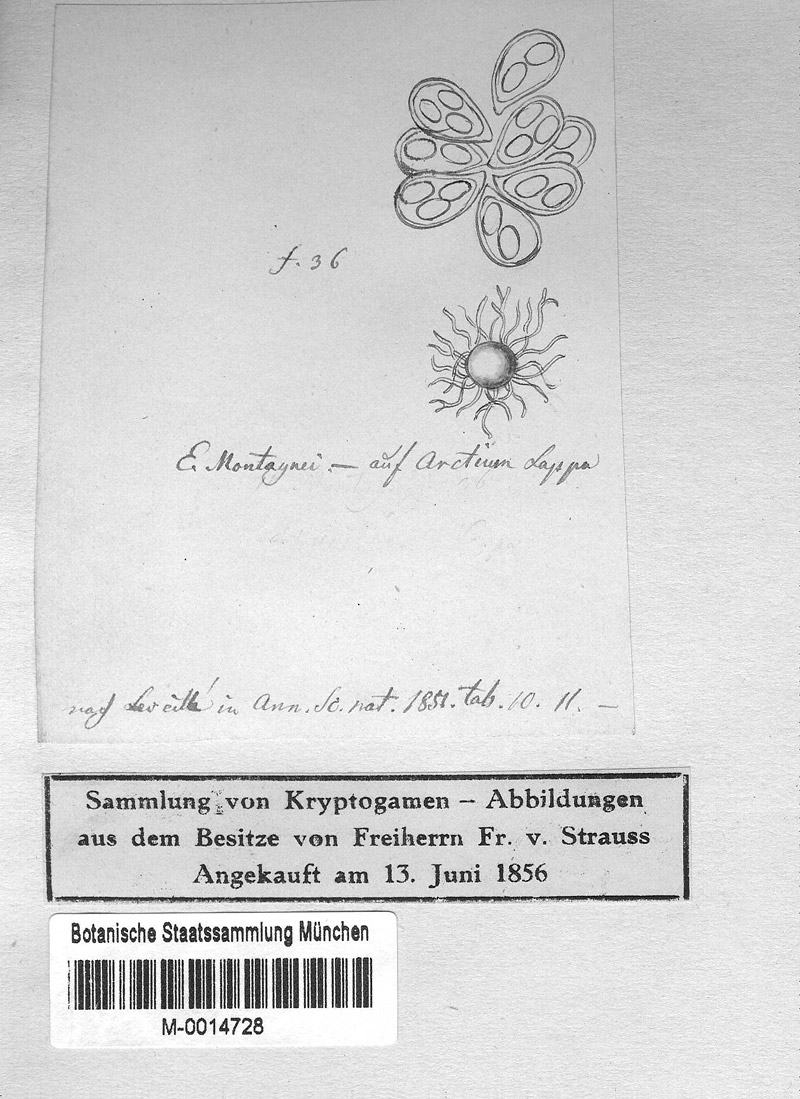 f. 36
E. Montagnei. — auf Arctium Lappa
nach Leveillé in Ann. Sc. nat. 1851. tab. 10. 11. —
Sammlung von Kryptogamen – Abbildungen
aus dem Besitze von Freiherrn Fr. v. Strauss
Angekauft am 13. Juni 1856
Botanische Staatssammlung München
M-0014728